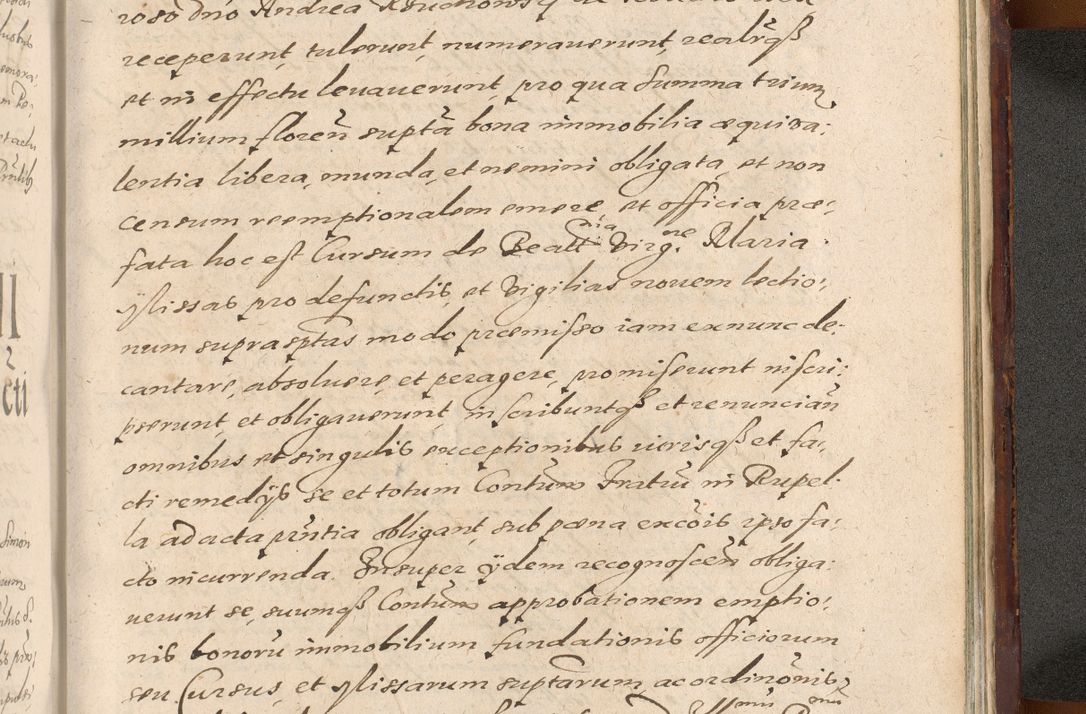 roso dno Andrea
receperunt, tulerunt, numerauerunt, realrqß
et in effectu leuauerunt, pro qua summa trium
millium floreñ supta bona immobilia æquiua:
lentia libera, munda, et nemini obligata, et non
censum reemptionalem emere, et officia præ:
fata hoc est Cursum de Beatt ma Virg. ne Maria
Missas pro defunctis, et Vigilias nouem lectio:
num supra sptas modo præmisso iam ex nunc de:
cantare, absoluere, et peragere, promiserunt inscri:
pserunt, et obligauerunt, inscribuntqß et renunciañ
omnibus et singulis exceptionibus iurisqß et fa:
cti remedÿs se et totum Contum Fratrũ in Rupel:
la ad acta pñtia obligant, sub pæna excõis ipso fa:
cto incurrenda. Insuper ÿdem recognosceñ obliga:
uerunt se, suumqß Contum approbationem emptio:
nis bonorũ immobilium fundationis officiorum
seu Cursus, et Missarum suptarum, ac ordinõnis